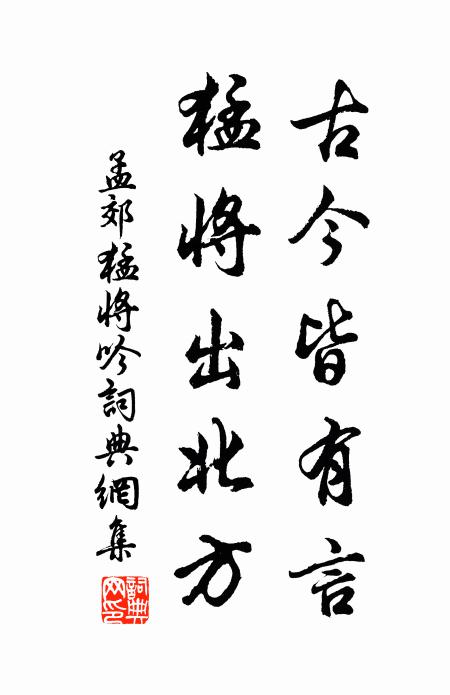 古今皆有言
猛將出北方
孟郊猛將吟詞典網集
詞典网印